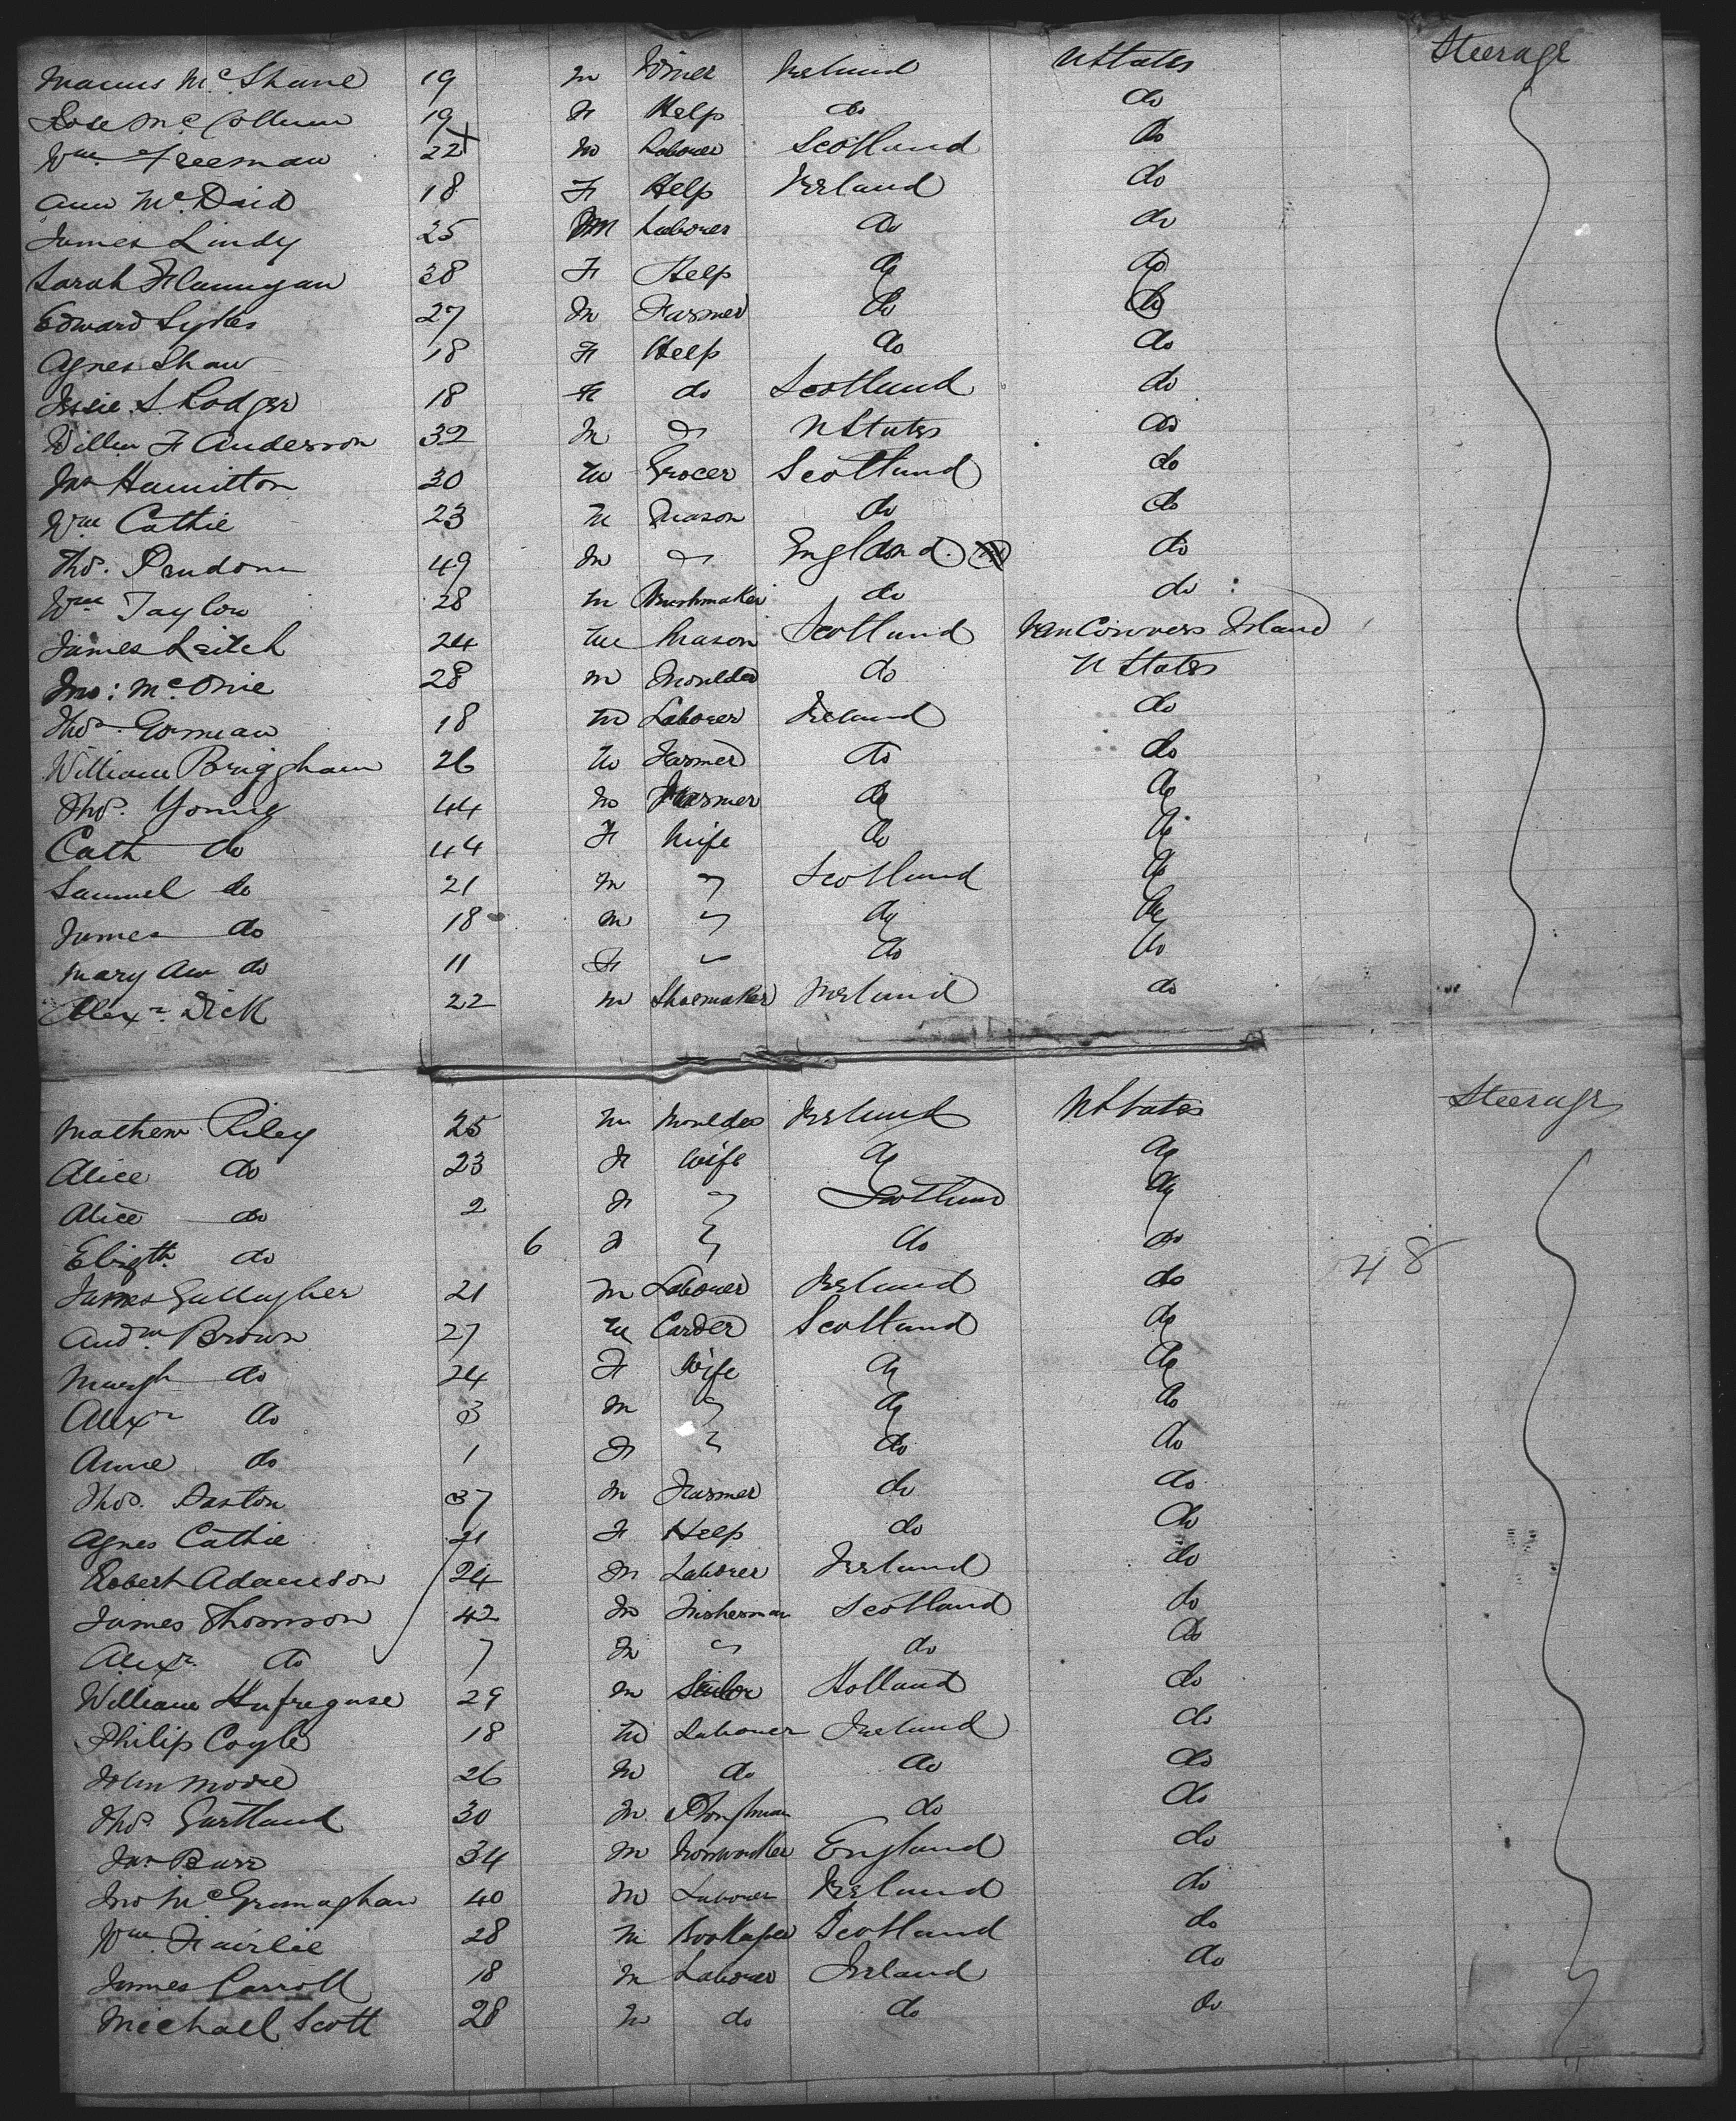 Manus McShane 19 m Joiner Ireland U States Steerage
Rose McCollum 19 F Help do do
Wm Freeman 22 m Laborer Scotland do
Ann McDaid 18 F Help Ireland do
James Lindy 25 M Laborer do do
Sarah Flannigan 38 F Help do do
Edward Sykes 27 m Farmer do do
Agnes Shaw 18 F Help do do
Jessie S. Rodger 18 F do Scotland do
Willm F Anderson 32 m " U States do
Jas Hamilton 30 m Grocer Scotland do
Wm Cathie 23 m Mason do do
Thos. Prudom 49 m " England do
Wm Taylor 28 m Brushmaker do do
James Leitch 24 m Mason Scotland VanCouvers Island
Jno: McOnie 28 m Moulder do U States
Thos Gorman 18 m Laborer Ireland do
William Briggham 26 m Farmer do do
Thos. Young 44 m Farmer do do
Cath do 44 F Wife do do
Samuel do 21 m " Scotland do
James do 18 m " do do
Mary Ann do 11 F " do do
Alexr. Dick 22 m Shoemaker Ireland do
Mathew Riley 25 m Moulder Ireland U States Steerage
Alice do 23 F Wife do do
Alice do 2 F " Scotland do
Elizth do 6 F " do do
James Gallagher 21 m Laborer Ireland do 48
Andw Brown 27 m Carder Scotland do
Margt do 24 F Wife do do
Alexr do 3 m " do do
Anne do 1 F " do do
Thos. Paston 37 m Farmer do do
Agnes Cathie 21 F Help do do
Robert Adamson 24 m Laborer Ireland do
James Thomson 42 m Fisherman Scotland do
Alexr. do 7 m " do do
William 29 m Sailor Holland do
Philip Coyle 18 m Laborer Ireland do
John Moore 26 m do do do
Thos Gartland 30 m Ploughman do do
Jas Burr 34 m Ironworker England do
Jno McGrumaghan 40 m Laborer Ireland do
Wm Fairlie 28 m Bookeeper Scotland do
James Carroll 18 m Laborer Ireland do
Michael Scott 28 m do do do